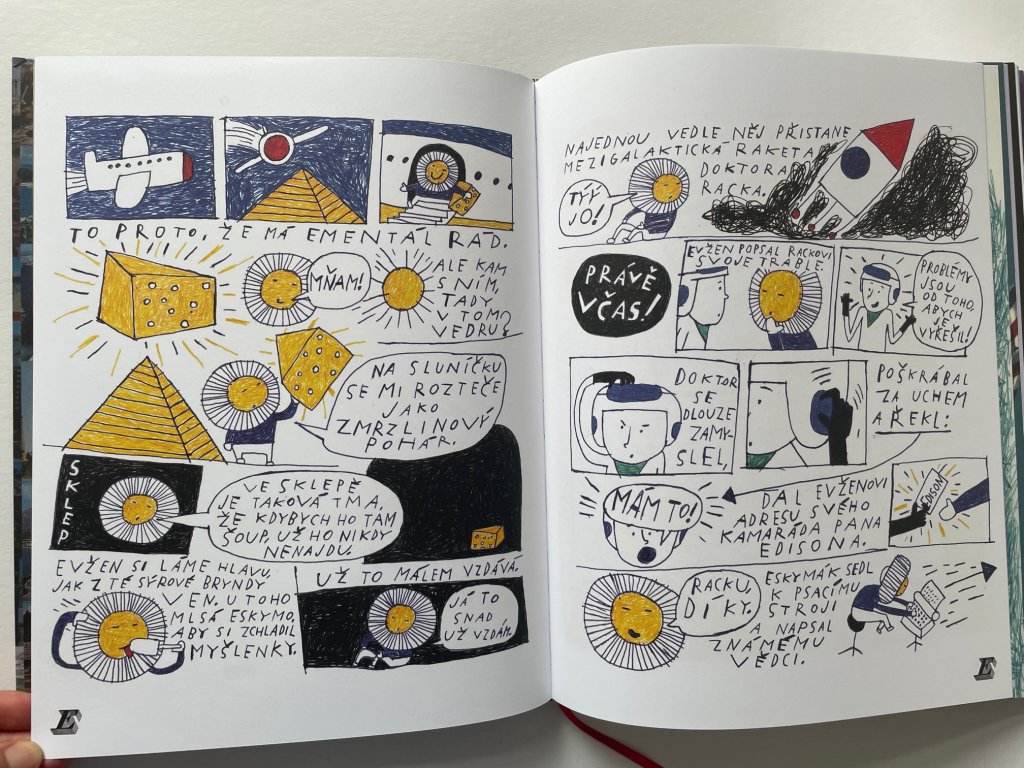 TO PROTO, ŽE MÁ EMENTÁL RÁD.
MŇAM!
ALE KAM
S NÍM,
TADY
V TOM
VEDRU?
NA SLUNÍČKU
SE MI ROZTEČE
JAKO
ZMRZLINOVÝ
POHÁR.
SKLEP
VE SKLEPĚ
JE TAKOVÁ TMA,
ŽE KDYBYCH HO TAM
ŠOUP, UŽ HO NIKDY
NENAJDU.
EVŽEN SI LÁME HLAVU,
JAK Z TÉ SÝROVÉ BRYNDY
VEN. U TOHO
MLSÁ ESKYMO,
ABY SI ZCHLADIL
MYŠLENKY.
UŽ TO MÁLEM VZDÁVÁ.
JÁ TO
SNAD
UŽ VZDÁM.
E
NAJEDNOU VEDLE NĚJ PŘISTANE
MEZIGALAKTICKÁ RAKETA
DOKTORA
RACKA.
TÝŽ
JO!
PRÁVĚ
VČAS!
EVŽEN POPSAL RACKOVI
SVOJE TRABLE.
PROBLÉMY
JSOU
OD TOHO,
ABYCH
JE
VYŘEŠIL!
DOKTOR
SE
DLOUZE
ZAMY-
SLEL,
POŠKRÁBAL
ZA UCHEM
A ŘEKL:
MÁM TO!
DAL EVŽENOVI
ADRESU SVÉHO
KAMARÁDA PANA
EDISONA.
EDISON
RACKU,
DÍKY.
ESKYMÁK SEDL
K PSACÍMU
STROJI
A NAPSAL
ZNÁMÉMU
VĚDCI.
E